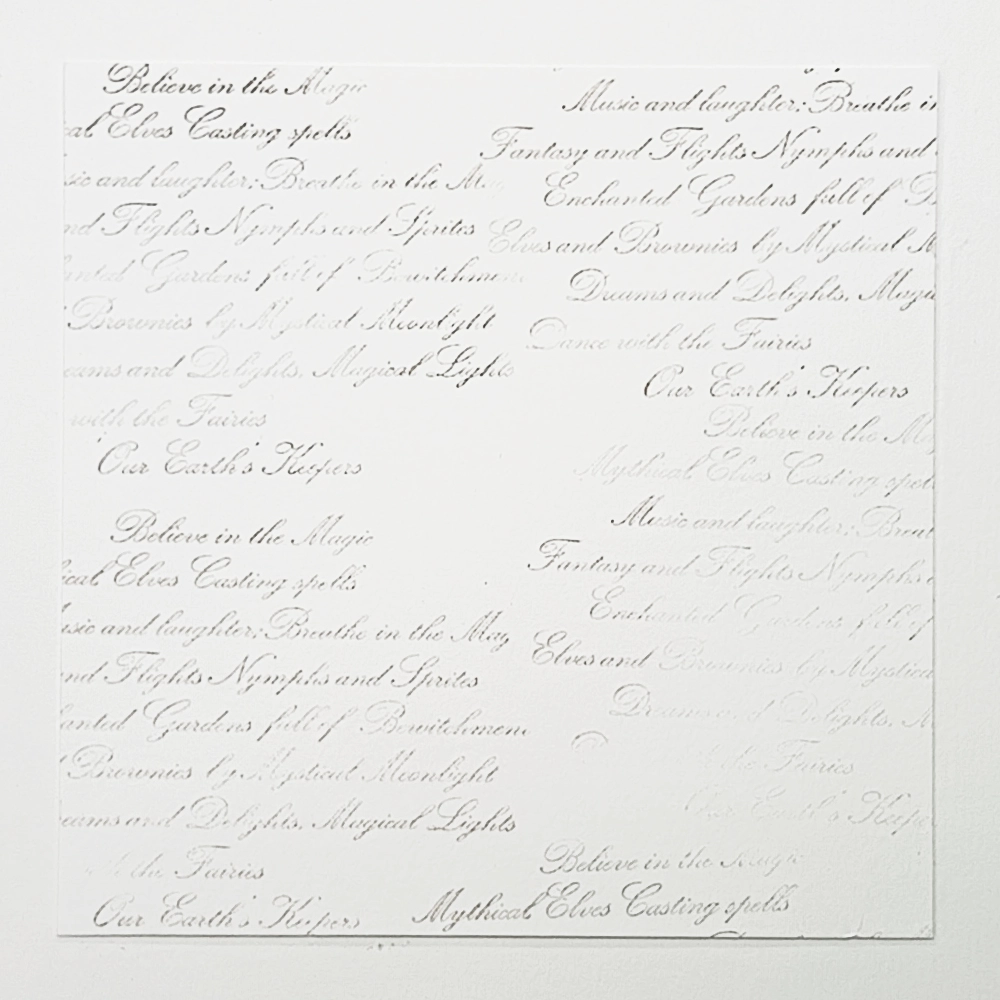 Believe in the Magic
cal Elves Casting spells
sic and laughter; Breathe in the Mag
nd Flights Nymphs and Sprites
anted Gardens full of Bewitchmen
Brownies by Mystical Moonlight
eams and Delights, Magical Lights
with the Fairies
Our Earth's Keepers
Believe in the Magic
ical Elves Casting spells
usic and laughter; Breathe in the Mag
nd Flights Nymphs and Sprites
anted Gardens full of Bewitchmen
Brownies by Mystical Moonlight
eams and Delights, Magical Lights
the Fairies
Our Earth's Keepers
Music and laughter; Breathe in
Fantasy and Flights Nymphs and
Enchanted Gardens full of B
Elves and Brownies by Mystical M
Dreams and Delights, Magic
Dance with the Fairies
Our Earth's Keepers
Believe in the Mag
Mythical Elves Casting spell
Music and laughter; Breat
Fantasy and Flights Nymphs
Enchanted Gardens full of
Elves and Brownies by Mystica
Dreams and Delights, M
the Fairies
Our Earth's Keepe
Believe in the Magic
Mythical Elves Casting spells